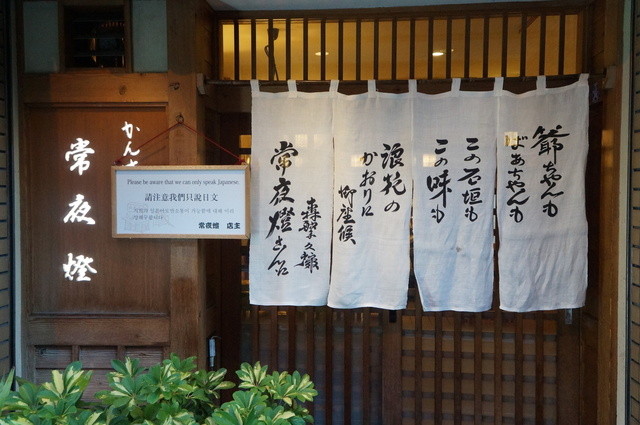 かんだ
常夜燈
Please be aware that we can only speak Japanese.
請注意我們只說日文
常夜燈 店主
爺ちゃんも
ばあちゃんも
この石垣も
この味も
浪花の
かおりに
御座候
常夜燈さん江
森繁久彌